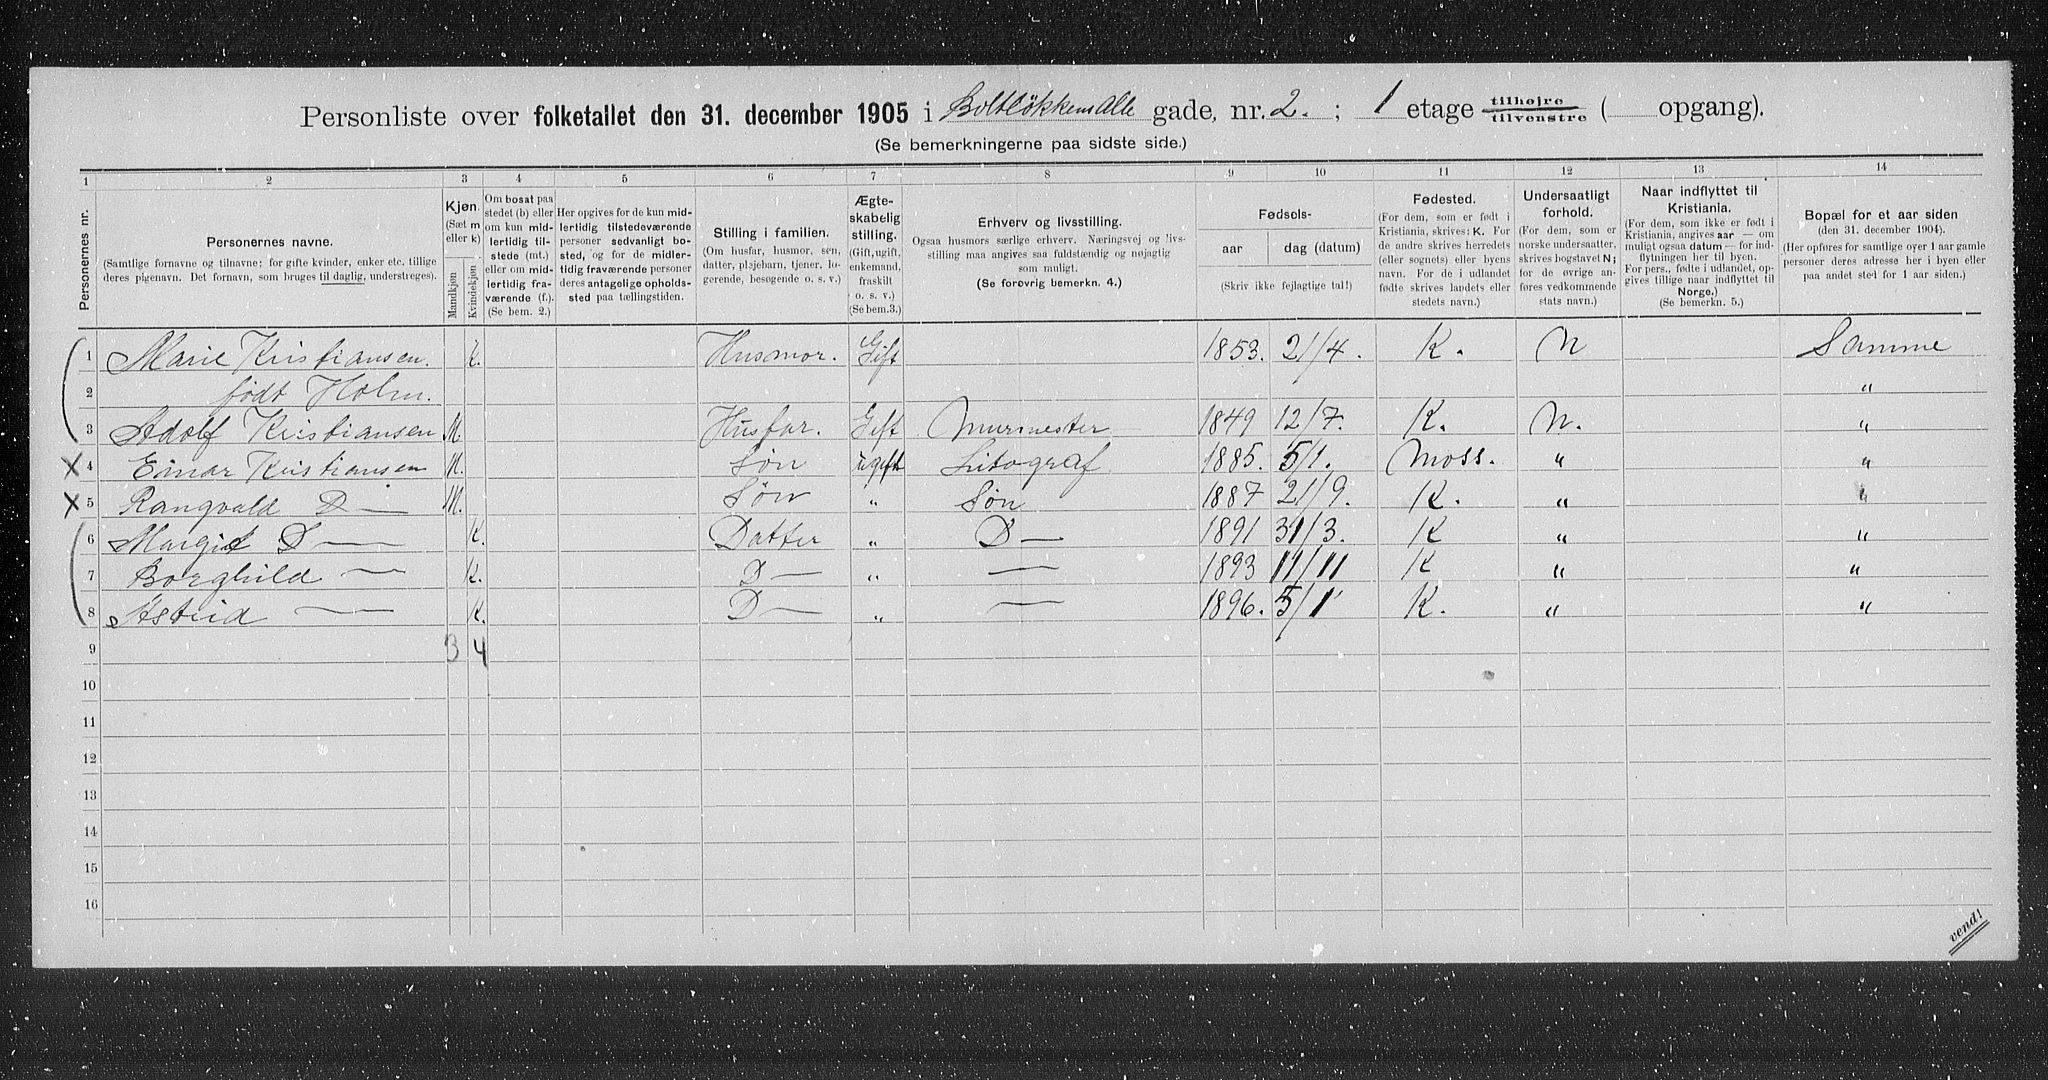 Personliste over folketallet den 31. december 1905 i Boltløkkens Alle gade, nr. 2. ; 1 etage tilhøjre/tilvenstre ( opgang).
(Se bemerkningerne paa sidste side.)
1 2 3 4 5 6 7 8 9 10 11 12 13 14
Personernes nr.
Personernes navne.
(Samtlige fornavne og tilnavne; for gifte kvinder, enker etc. tillige
deres pigenavn. Det fornavn, som bruges til daglig, understreges).
Kjøn.
(Sæt m
eller k)
Mandkjøn
Kvindekjøn
Om bosat paa
stedet (b) eller
om kun mid-
lertidig til-
stede (mt.)
eller om mid-
lertidig fra-
værende (f.).
(Se bem. 2.)
Her opgives for de kun mid-
lertidig tilstedeværende
personer sedvanlig bo-
sted, og for de midler-
tidig fraværende personer
deres antagelige opholds-
sted paa tællingstiden.
Stilling i familien.
(Om husfar, husmor, søn,
datter, plejebarn, tjener, lo-
gerende, besøgende o. s. v.)
Ægte-
skabelig
stilling.
(Gift, ugift,
enkemand,
fraskilt
o. s. v.)
(Se bem. 3.)
Erhverv og livsstilling.
Ogsaa husmors særlige erhverv. Næringsvej og livs-
stilling maa angives saa fuldstændig og nøjagtig
som muligt.
(Se forøvrig bemerkn. 4.)
Fødsels-
aar dag (datum)
(Skriv ikke fejlagtige tal!)
Fødested.
(For dem, som er født i
Kristiania, skrives: K. For
de andre skrives herredets
(eller sognets) eller byens
navn. For de i udlandet
fødte skrives landets eller
stedets navn.)
Undersaatligt
forhold.
(For dem, som er
norske undersaatter,
skrives bogstavet N;
for de øvrige an-
føres vedkommende
stats navn.)
Naar indflyttet til
Kristiania.
(For dem, som ikke er født i
Kristiania, angives aar — om
muligt ogsaa datum — for ind-
flytningen her til byen.
For pers., fødte i udlandet, op-
gives tillige naar indflyttet til
Norge.)
(Se bemerkn. 5.)
Bopæl for et aar siden
(den 31. december 1904).
(Her opføres for samtlige over 1 aar gamle
personer deres adresse her i byen eller
paa andet sted for 1 aar siden.)
1 Marie Kristiansen. K. Husmor. Gift 1853. 21/4. K. N Samme
2 født Holm. "
3 Adolf Kristiansen M. Husfar. Gift Murmester 1849 12/7. K. N. "
X 4 Einar Kristiansen M. Søn ugift Litograf 1885. 5/1. Moss. " "
X 5 Rangvald D — M. Søn " Søn 1887 21/9. K. " "
6 Margit D — K. Datter " D — 1891 31/3. K " "
7 Borghild — K. D — " — 1893 11/11 K " "
8 Astrid — K. D — " — 1896. 5/1 K. " "
9 3 4
10
11
12
13
14
15
16
vend!